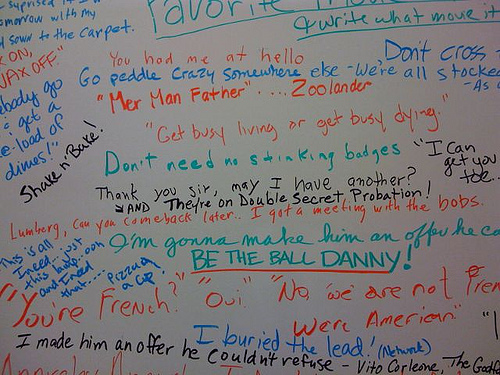 Favorite
& write what movie it
tomorrow with my
down to the carpet.
ON,
WAX OFF."
You had me at hello
Don't cross
Go peddle crazy somewhere else - We're all stocked
"Mer Man Father".... Zoolander
go
get a
load of
dimes!"
Shake n' Bake!
"Get busy living or get busy dying."
Don't need no stinking badges
"I can
get you
toe..
Thank you sir, may I have another?
AND They're on Double Secret Probation!
Lumberg, can you come back later.. I got a meeting with the bobs.
I'm gonna make him an offer he co
This is all
I need.. just
this
and I need
that...
BE THE BALL DANNY!
"You're French?" "Oui." "No we are not Fren
We're American."
I buried the lead! (Network)
I made him an offer he couldn't refuse - Vito Corleone, The Godf